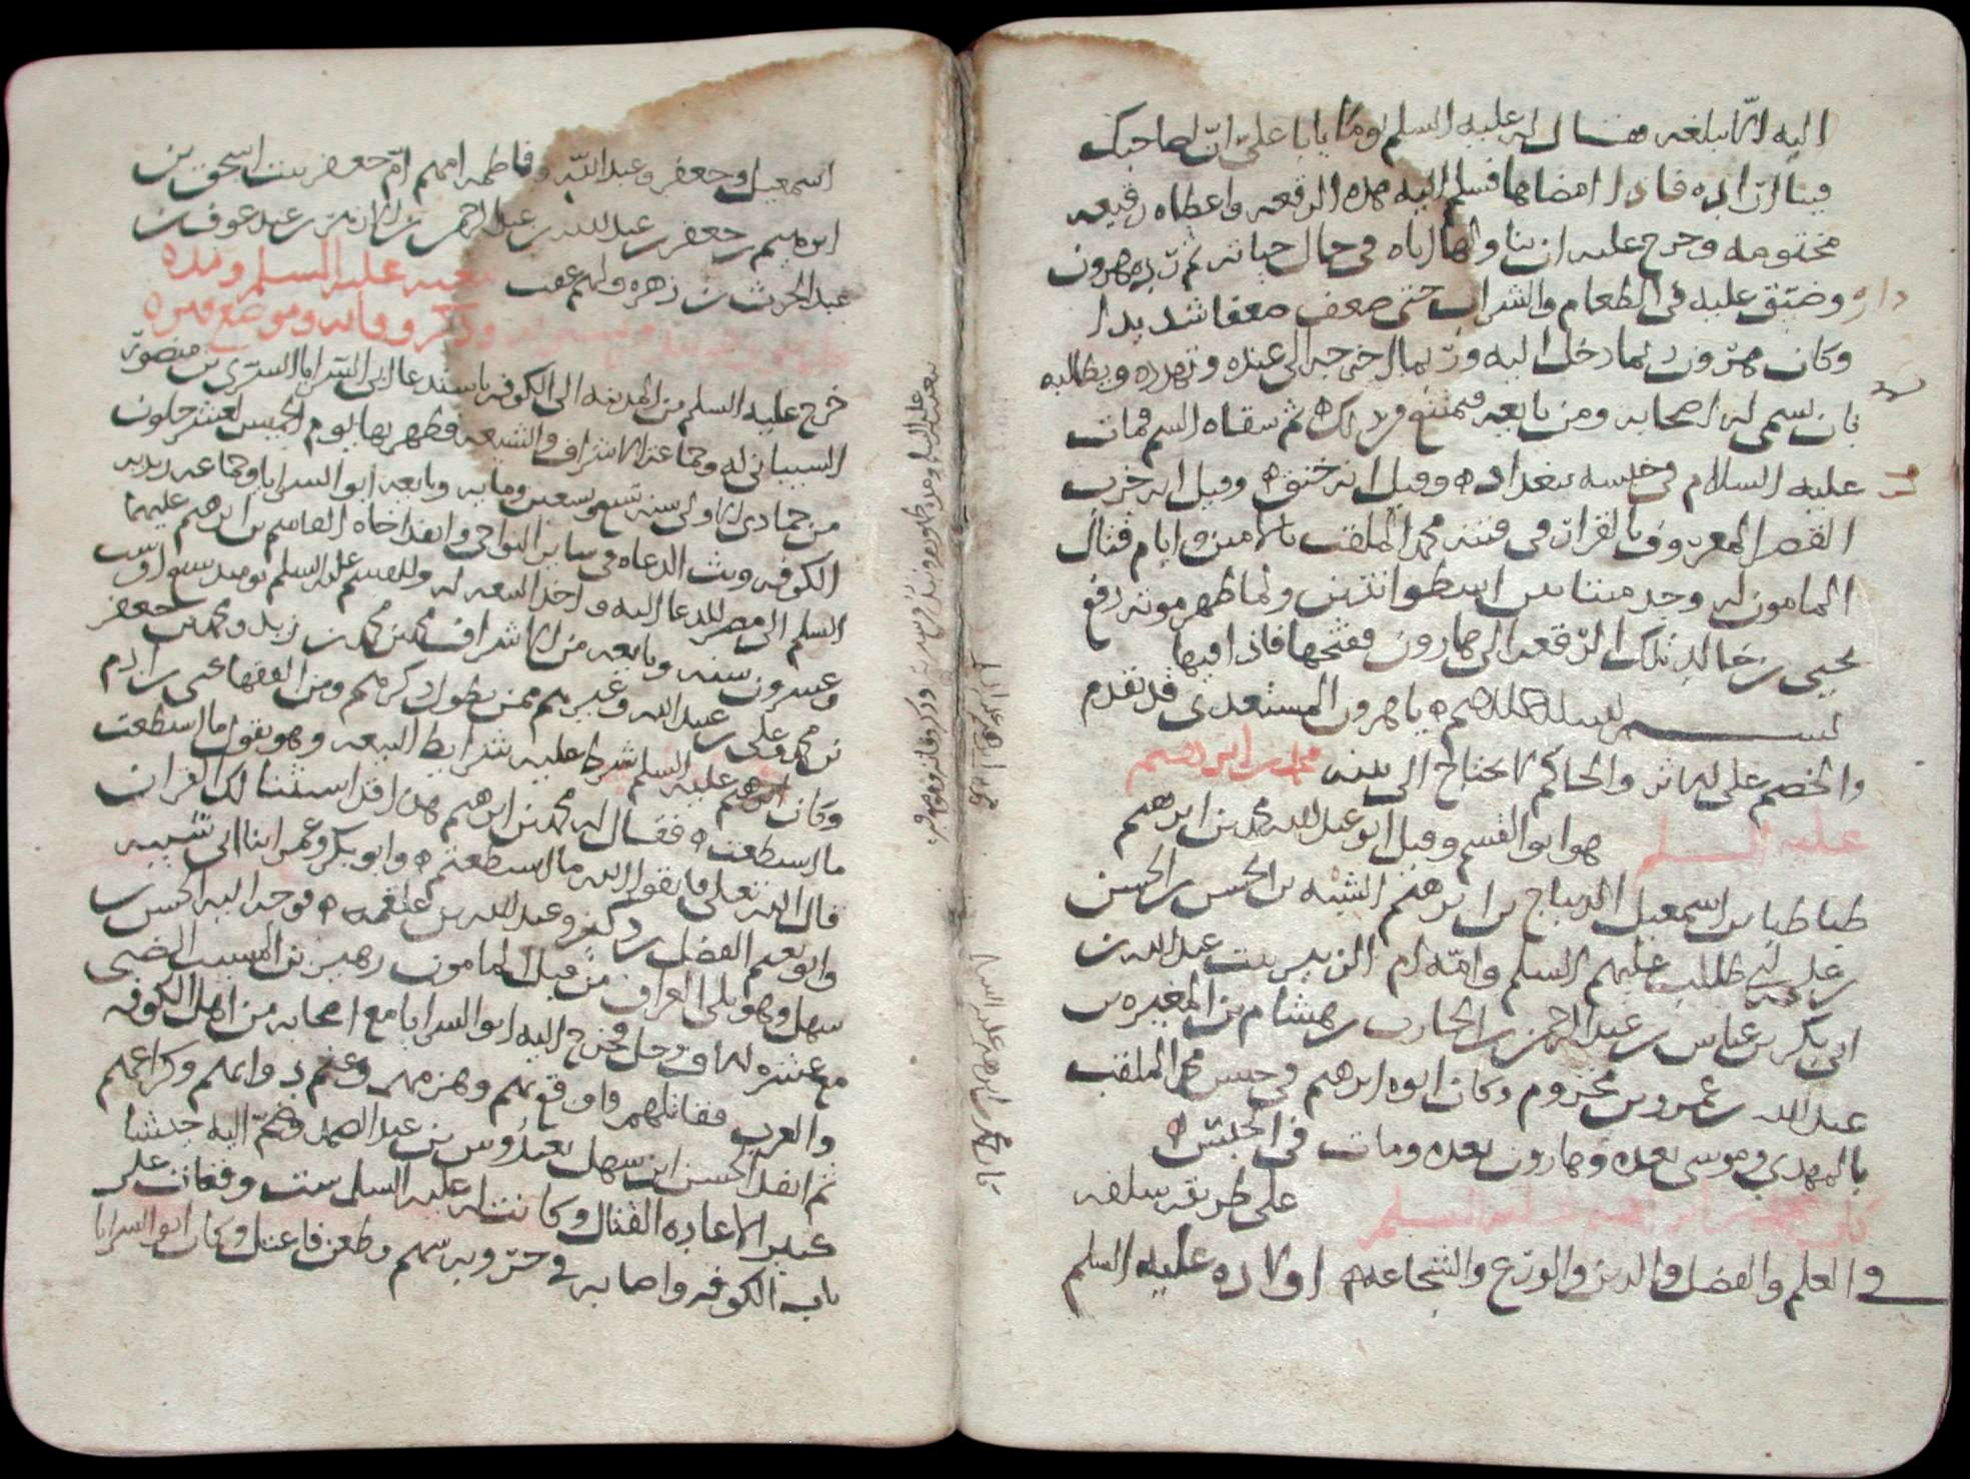 اليه انها تبلغه فقال له عليه السلم يوما يا با علي ان لصاحبك
فينا ارادة فاذا امضاها فسلم اليه هذه الرقعه واعطاه رقيعه
مختومه وحرج عليه ان يناولها اياه في حال حياته ثم رده هرون
وضيق عليه في الطعام والشراب حتى ضعف ضعفا شديدا
وكان هرون ربما دخل اليه وربما اخرجه الى عنده وتهدده ويطالبه
بان يسمي له اصحابه ومن بايعه فيمتنع من ذلك ثم سقاه السم فمات
عليه السلام في حبسه ببغداد وقيل انه خنق وقيل انه خرب
القصر المعروف بالقرار في فتنة محمد الملقب بالامين وايام قتال
المامون له وجد ميتا بين اسطوانتين ولما ظهر موته دفع
يحيى بن خالد تلك الرقعه الى هارون ففتحها فاذا فيها
بسم الله الرحمن الرحيم يا هرون المستعدى قد تقدم
والخصم على الاثر والحاكم لا يحتاج الى بينه محمد بن ابرهيم
عليه السلم هو ابو القسم وقيل ابو عبد الله محمد بن ابرهيم
طباطبا بن اسمعيل الديباج بن ابرهيم الشبه بن الحسن بن الحسن
بن علي بن ابي طالب عليهم السلم وامه ام الزبير بنت عبد الله بن
ابي بكر بن عياش بن عبد الرحمن بن الحارث بن هشام بن المغيره بن
عبد الله بن عمرو بن مخزوم وكان ابوه ابرهيم في حبس محمد الملقب
بالمهدي وموسى بعده وهارون بعده ومات في الحبس
كان محمد بن ابرهيم عليه السلم على طريقه سلفه
في العلم والفضل والدين والورع والشجاعه اولاده عليه السلم
اسمعيل وجعفر وعبد الله وفاطمه امهم ام جعفر بنت اسحق بن
ابرهيم بن جعفر بن عبد الله بن عبد الرحمن بن الازهر بن عبد عوف بن
عبد الحرث بن زهره ولهم عقب
بيعته عليه السلم ومده
وذكر وفاته وموضع قبره
خرج عليه السلم من المدينه الى الكوفه باستدعا ابي السرايا السري بن منصور
الشيباني له وجماعة الاشراف والشيعه فظهر بها يوم الخميس لعشر خلون
من جمادى الاولى سنه تسع وتسعين ومايه وبايعه ابو السرايا وجماعه زيديه
الكوفه وبث الدعاه في ساير النواحي وانفذ اخاه القاسم بن ابرهيم عليهما
السلم الى مصر للدعا اليه واخذ البيعه له وللقسم عليه السلم يوميذ
وعشرون سنه وبايعه من الاشراف محمد بن محمد بن زيد ومحمد بن جعفر
بن محمد وعلي بن عبيد الله وغيرهم ممن يطول ذكرهم ومن الفقها يحيى بن ادم
وكان عليه السلم شرط عليه شرايط البيعه وهو يقول ما استطعت
ما استطعت فقال له محمد بن ابرهيم هذا قد استثناه لك القران
قال الله تعلى فاتقوا الله ما استطعتم وابو بكر وعمر ابنا ابي شيبه
وابو نعيم الفضل بن دكين وعبد الله بن علقمه فوجه اليه الحسن بن
سهل وهو يلي العراق من قبل المامون زهير بن المسيب الضبي
مع عشره الاف رجل فخرج اليه ابو السرايا مع اصحابه من اهل الكوفه
والعرب فقاتلهم واوقع بهم وهزمهم وغنم دوابهم وكراعهم
ثم انفذ الحسن ابن سهل بعبدوس بن عبد الصمد وضم اليه جيشا
كبيرا لاعاده القتال وكانت له عليه السلم ست وقعات على
باب الكوفه واصابه في حروبه سهم وطعن فاعتل وكان ابو السرايا